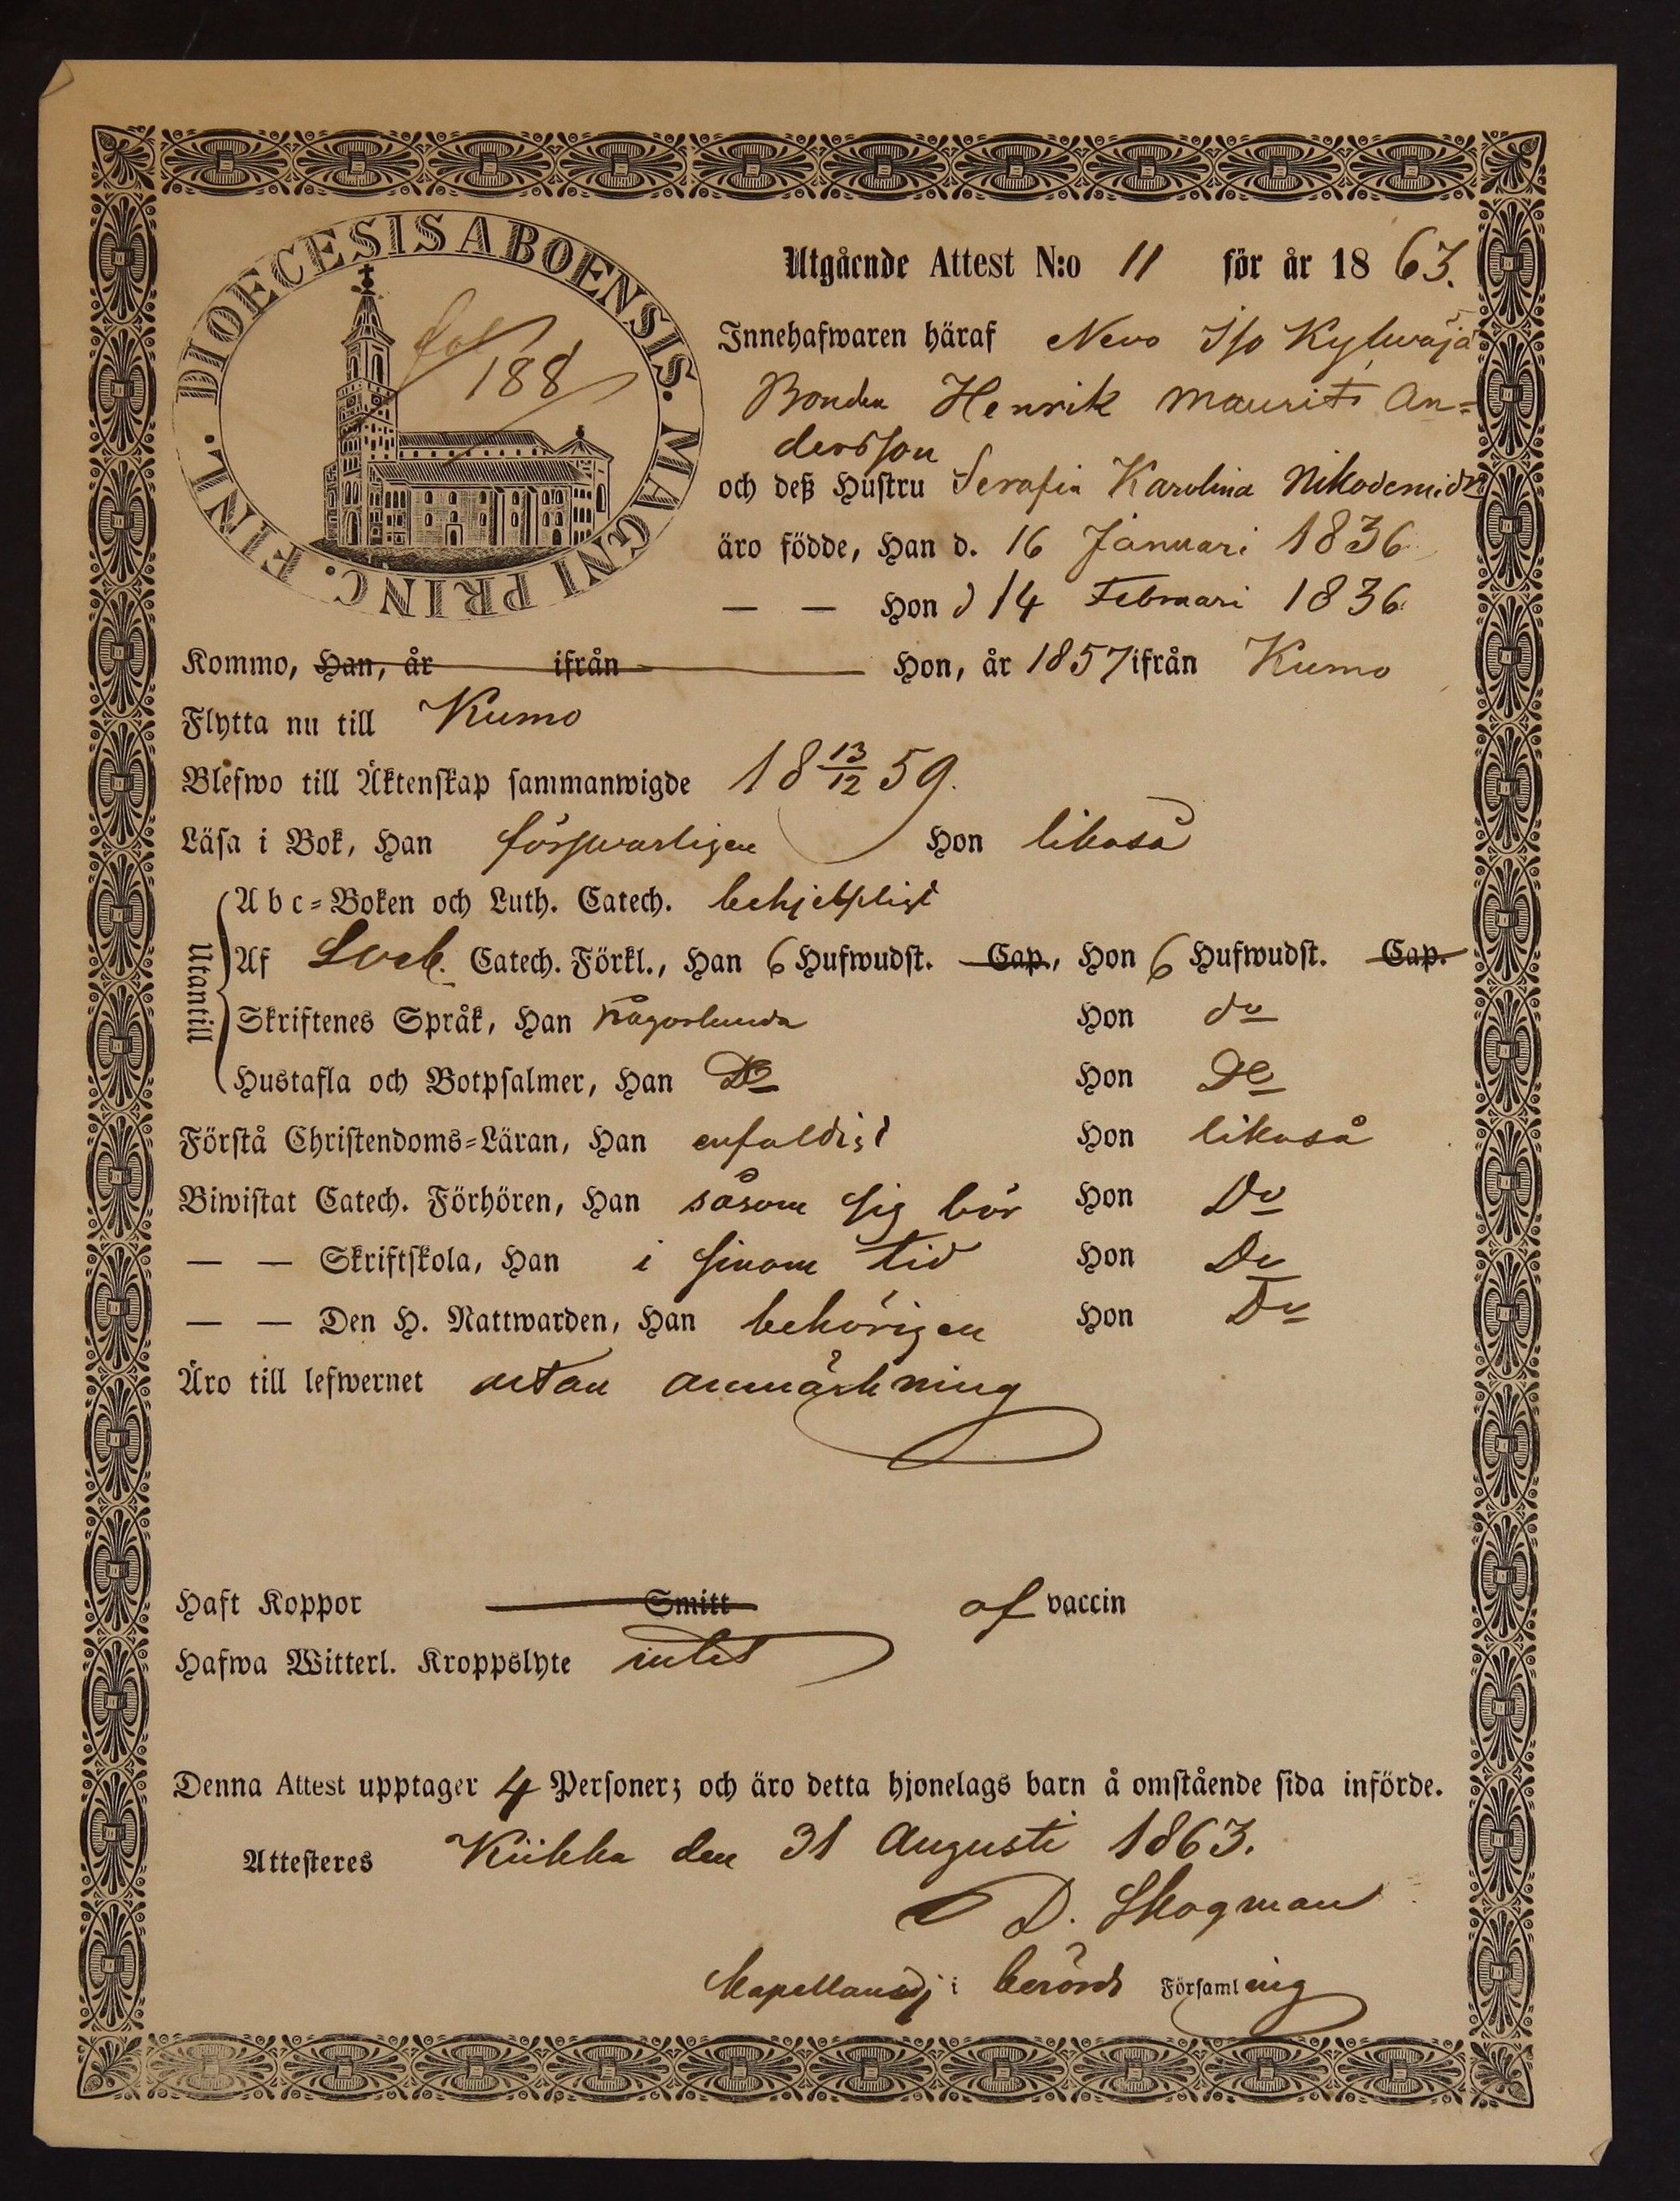 DIOECESIS ABOENSIS. MAGNI PRINC. FINL.
fol 188
Utgående Attest N:o 11 för år 1863.
Innehafwaren häraf Nevo Iso Kylwäjä
Bonden Henrik Maurits An=
dersson
och deß Hustru Serafia Karolina Nikodemidr
äro födde, Han d. 16 Januari 1836
— — Hon d 14 Februari 1836
Kommo, Han, år ifrån Hon, år 1857 ifrån Kumo
Flytta nu till Kumo
Blefwo till Äktenskap sammanwigde 18 13/12 59.
Läsa i Bok, Han förswarligen Hon likaså
Utantill
Abc=Boken och Luth. Catech. behjelpligt
Af Sveb. Catech. Förkl., Han 6 Hufwudst. Cap., Hon 6 Hufwudst. Cap.
Skriftenes Språk, Han någorlunda Hon do
Hustafla och Botpsalmer, Han Do Hon Do
Förstå Christendoms=Läran, Han enfaldigt Hon likaså
Biwistat Catech. Förhören, Han såsom sig bör Hon Do
— — Skriftskola, Han i sinom tid Hon Do
— — Den H. Nattwarden, Han behörigen Hon Do
Äro till lefwernet utan anmärkning
Haft Koppor Smitt af vaccin
Hafwa Witterl. Kroppslyte intet
Denna Attest upptager 4 Personer; och äro detta hjonelags barn å omstående sida införde.
Attesteres Kiikka den 31 Augusti 1863.
D. Skogman
Kapellansadj i berörde Församling